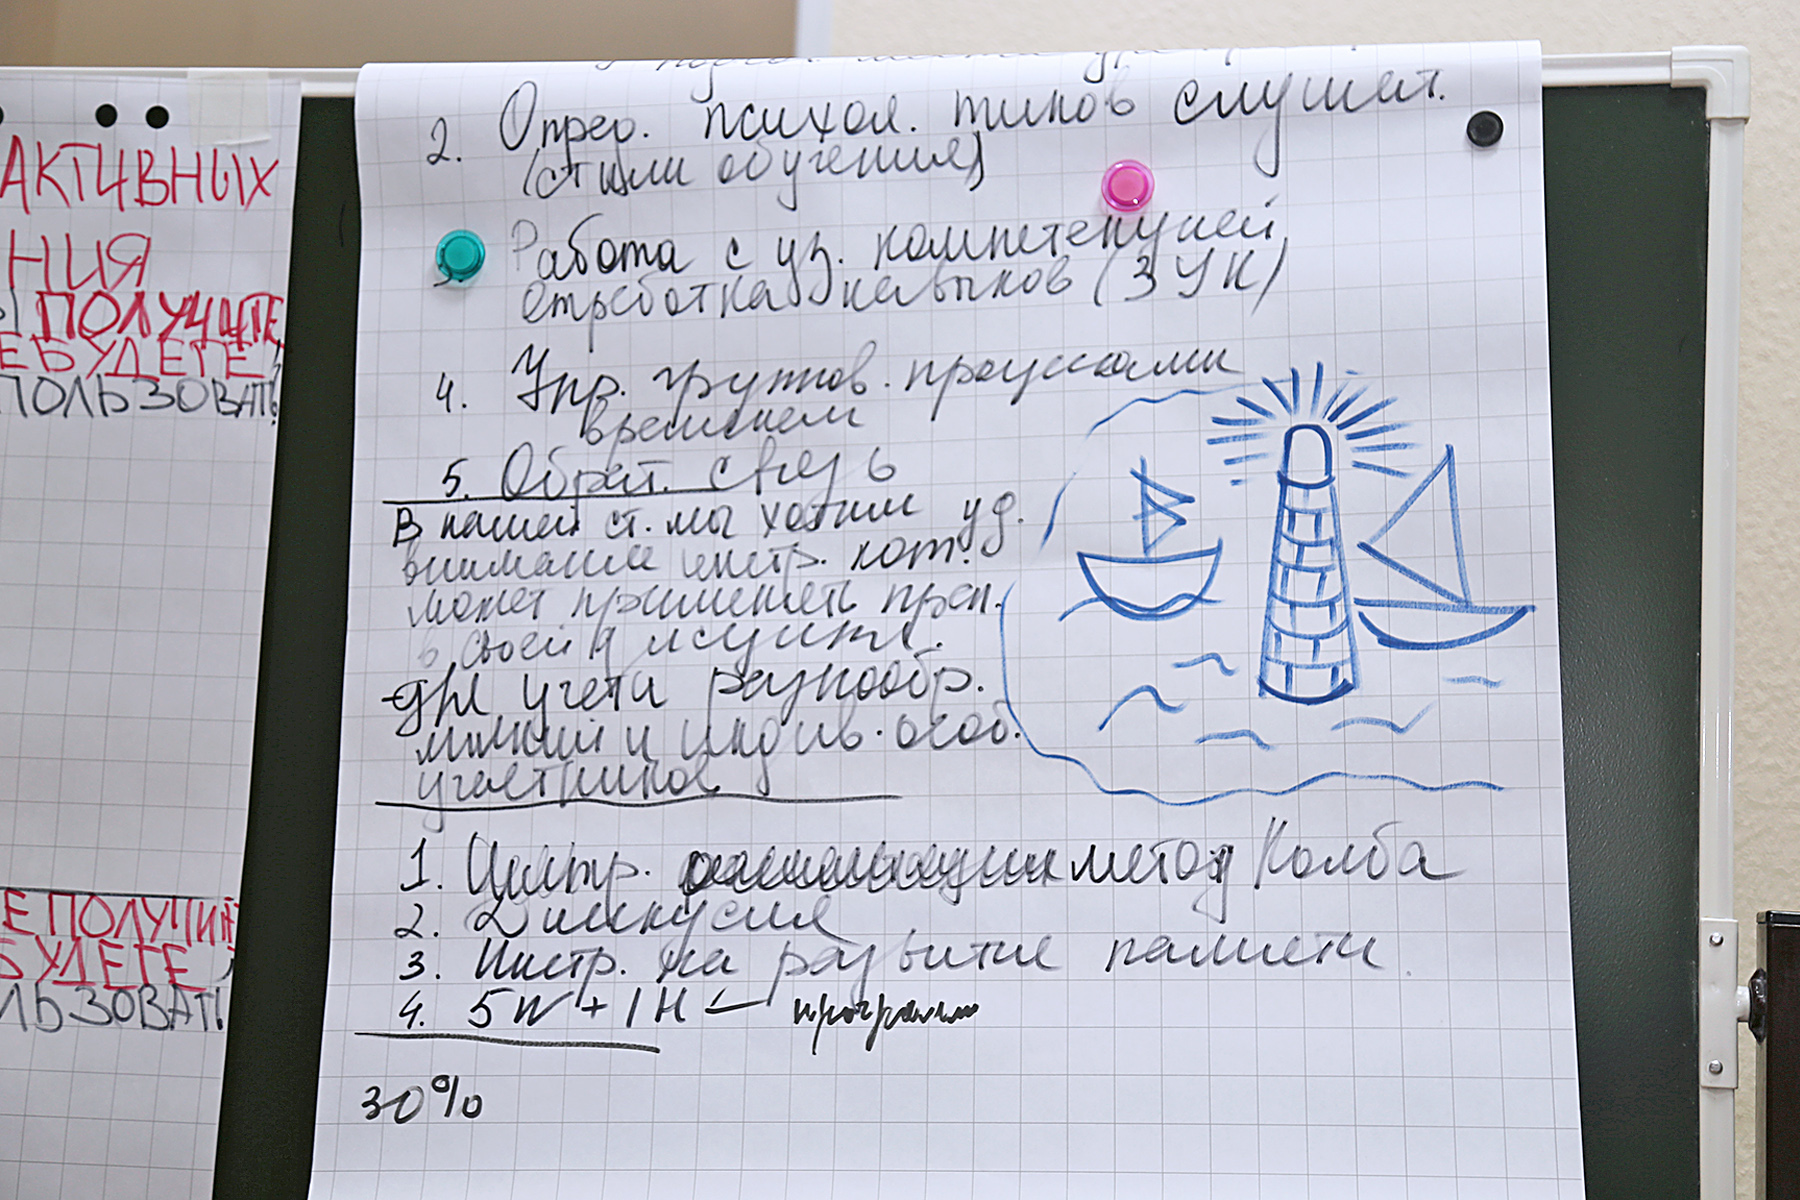 АКТИВНЫХ
НИЯ
Ы ПОЛУЧАЕТЕ,
ЕБУДЕТЕ
ПОЛЬЗОВАТЬ?
Е ПОЛУЧИТЕ
БУДЕТЕ,
ЛЬЗОВАТЬ
2. Опред. психол. типов слушат.
(стили обучения)
3. Работа с уз. компетенцией,
отработка навыков (ЗУК)
4. Упр. группов. процессами
временем
5. Обрат. связь
В нашей ст. мы хотим уд.
внимание инстр. кот.
может применять преп.
в своей
для учета разнообр.
и индив. особ.
участников
1. Центр. метод Колба
2. Дискуссия
3. Инстр. на развитие памяти.
4. 5W + 1H ←
30%